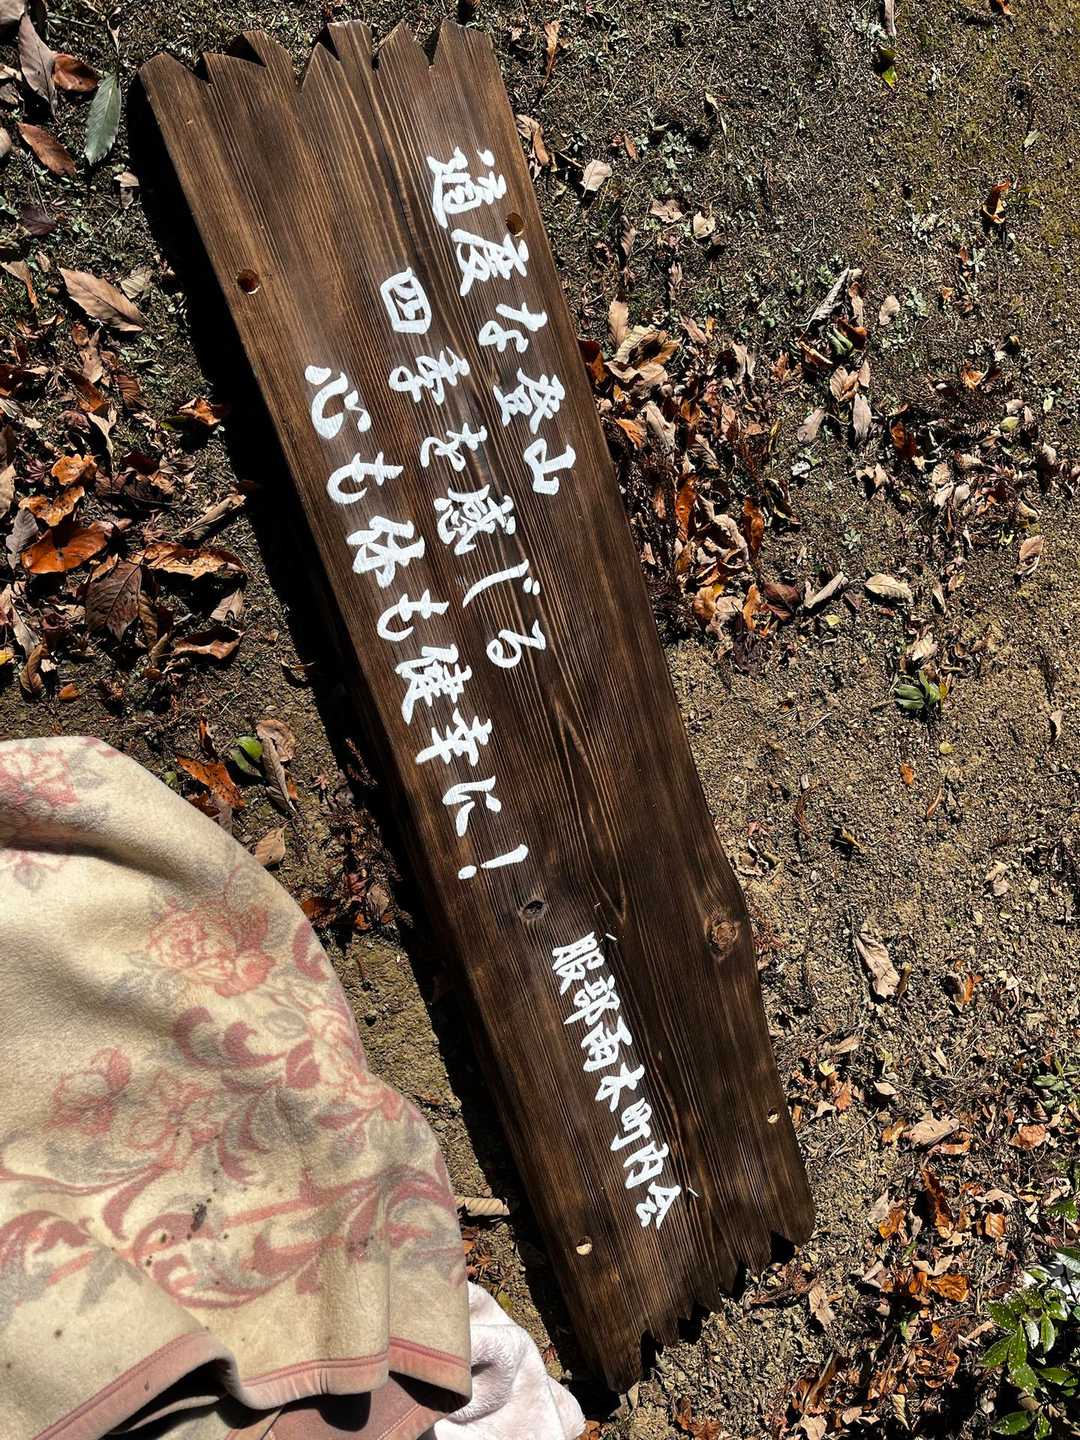 適度な登山
四季を感じる
心も体も健幸に!
服部雨木町内会